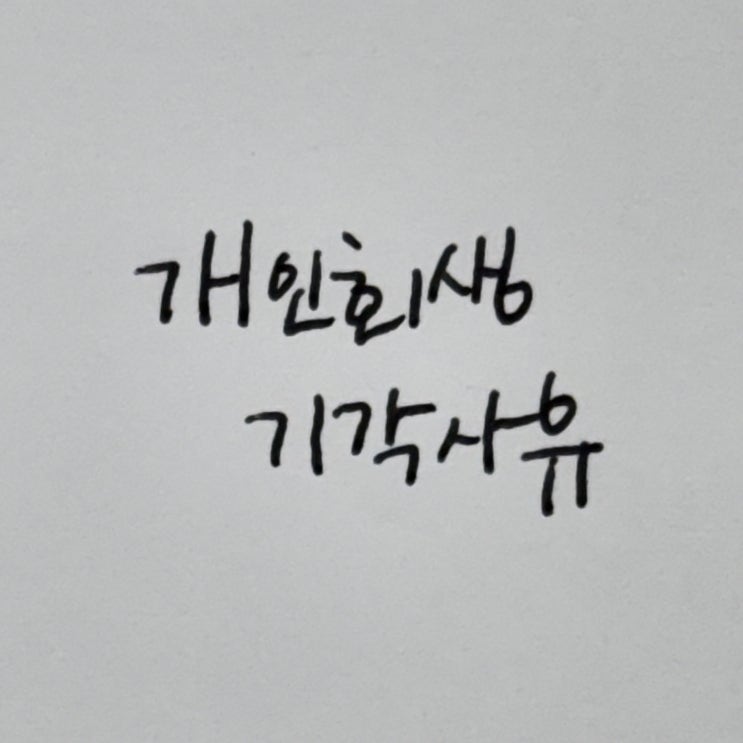 개인회생
기각사유